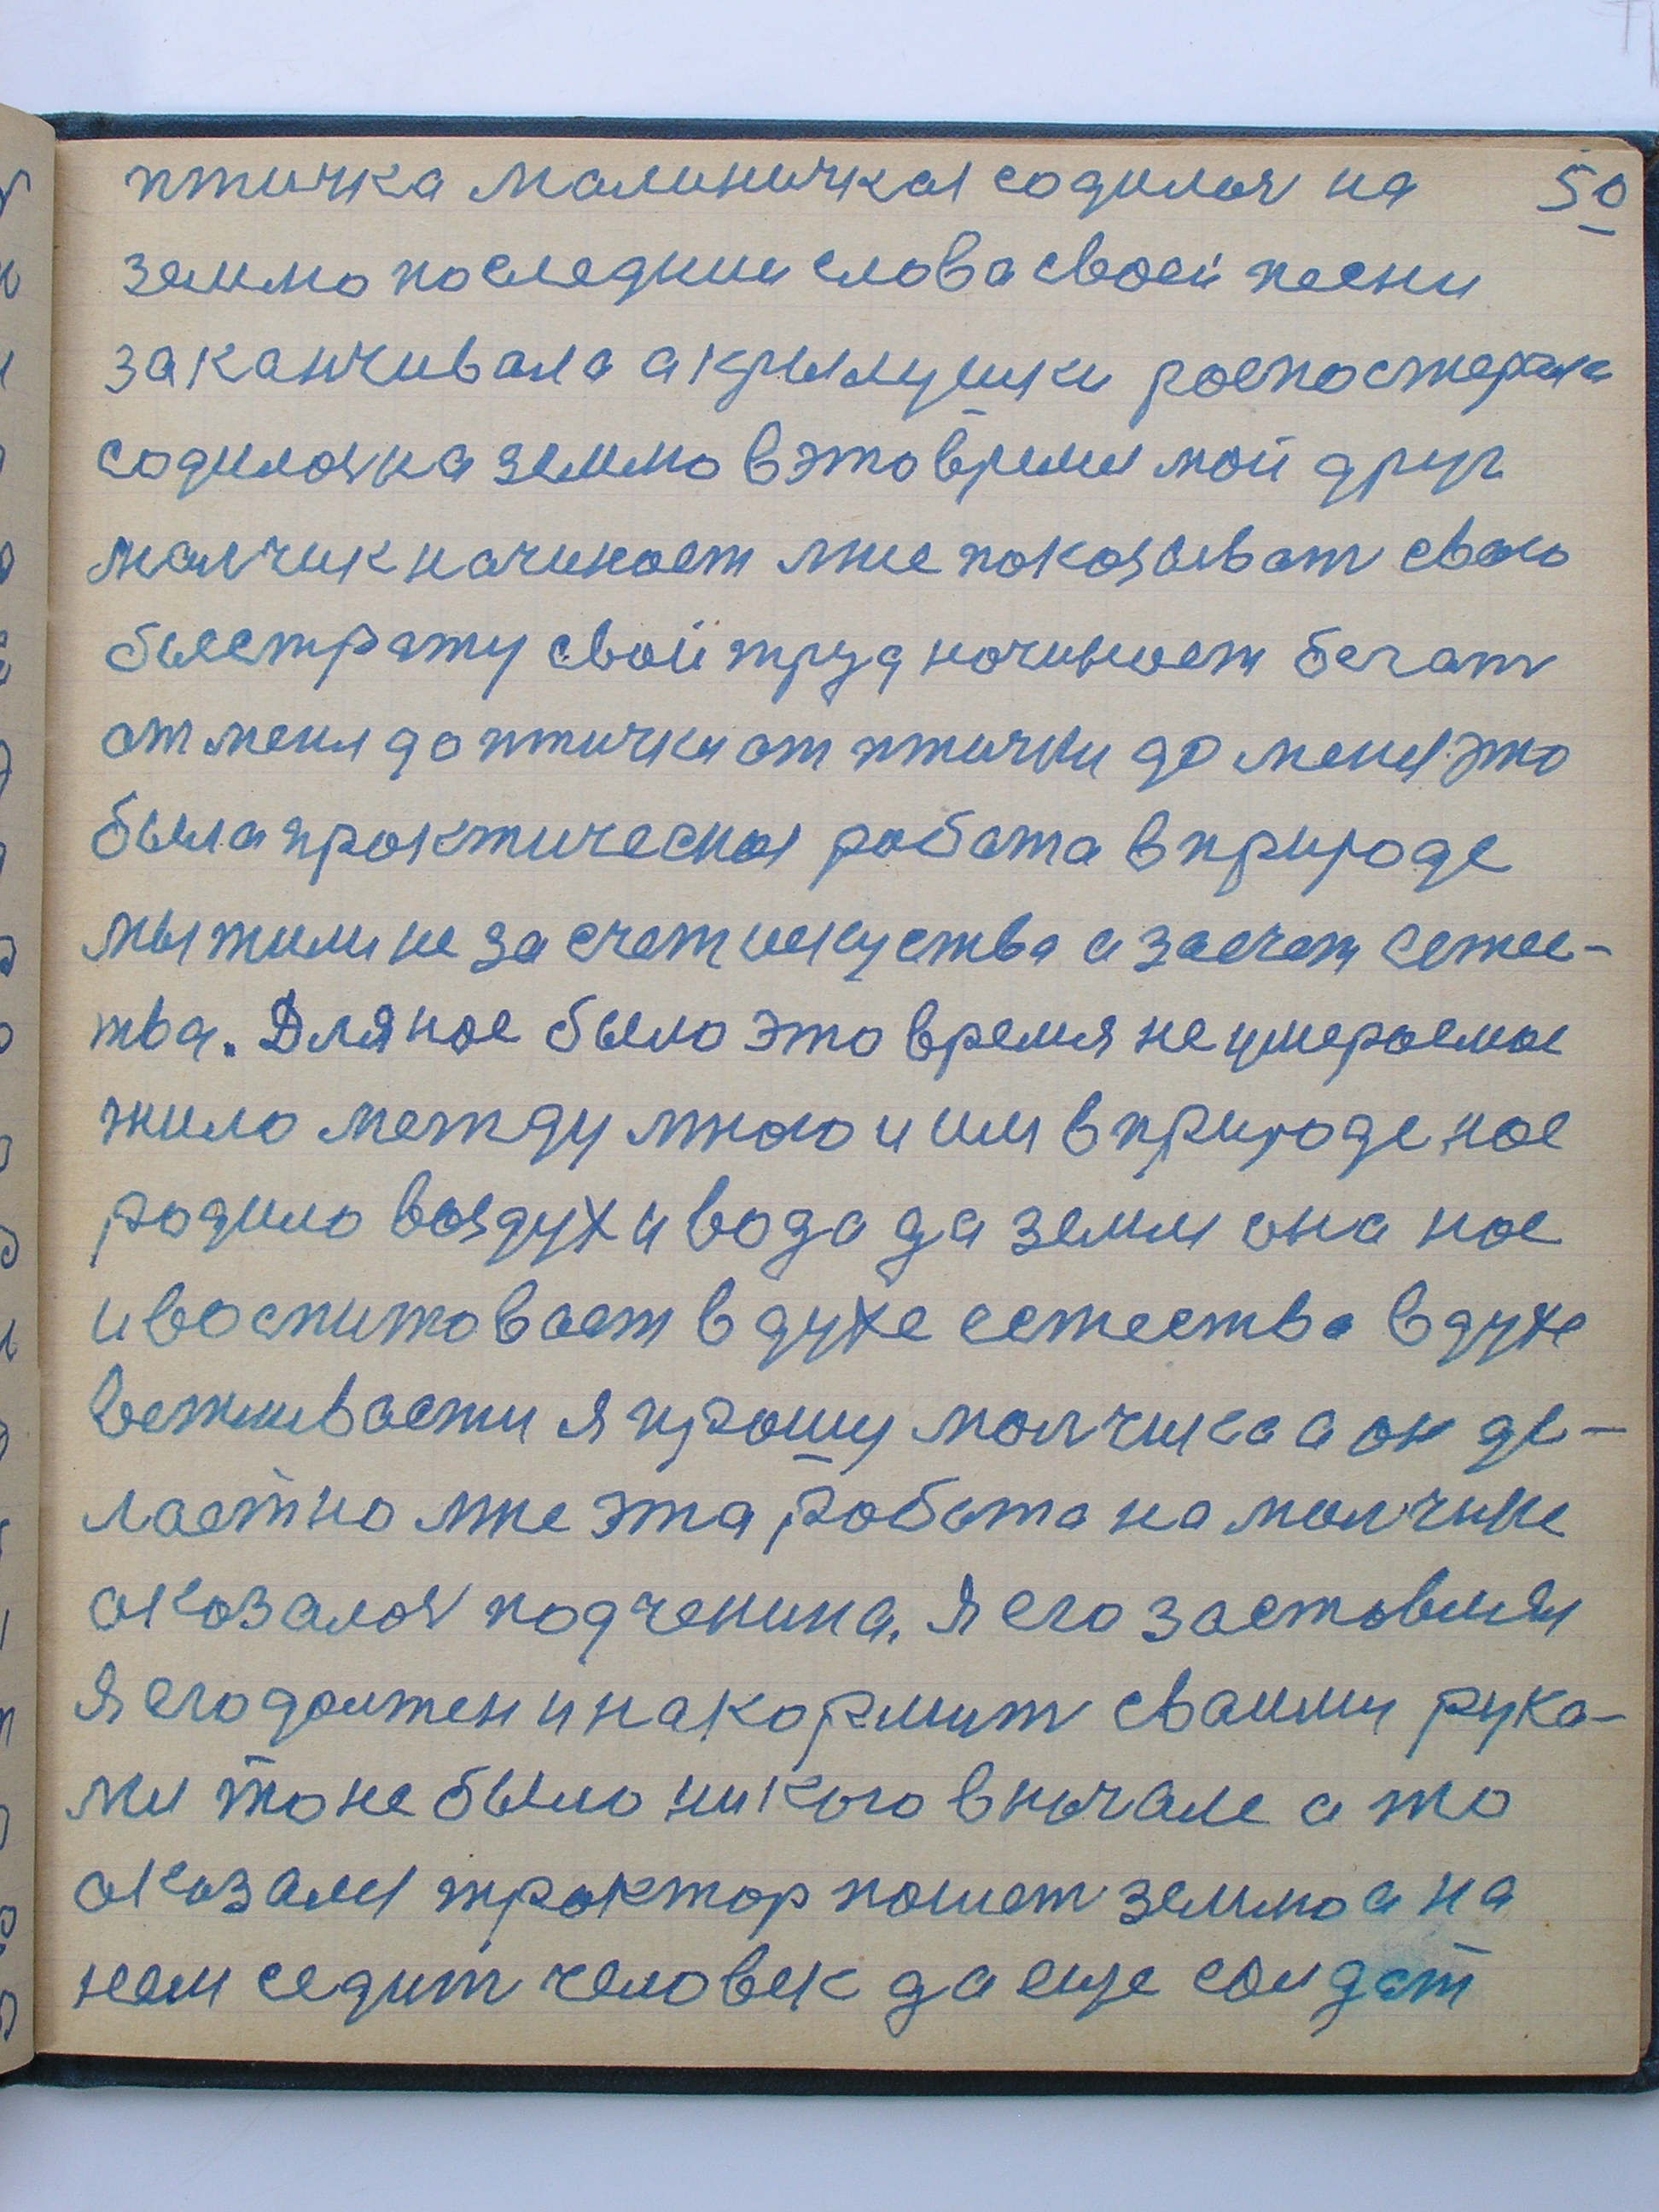 птичка малиничкая содилася на 50
землю последнии слова своей песни
заканчивала а крылушки роспостерала
содилася на землю в это время мой друг
малчик начинает мне показыват свою
быстрату свой труд начинает бегат
от меня до птички от птички до меня это
была практическая работа в природе
мы жили не за счет искуства а за счет естес-
тва. Для нас было это время не умераемое
жило между мною и им в природе нас
родило воздух и вода да земля она нас
и воспитовает в духе естества в духе
вежливасти я прошу малчика а он де-
лает но мне эта работа на малчике
оказалося подченина. Я его заставлял
я его должен и накормит сваими рука-
ми то не было никого в начале а то
оказался трактор пошет землю а на
нем седит человек да еще солдат